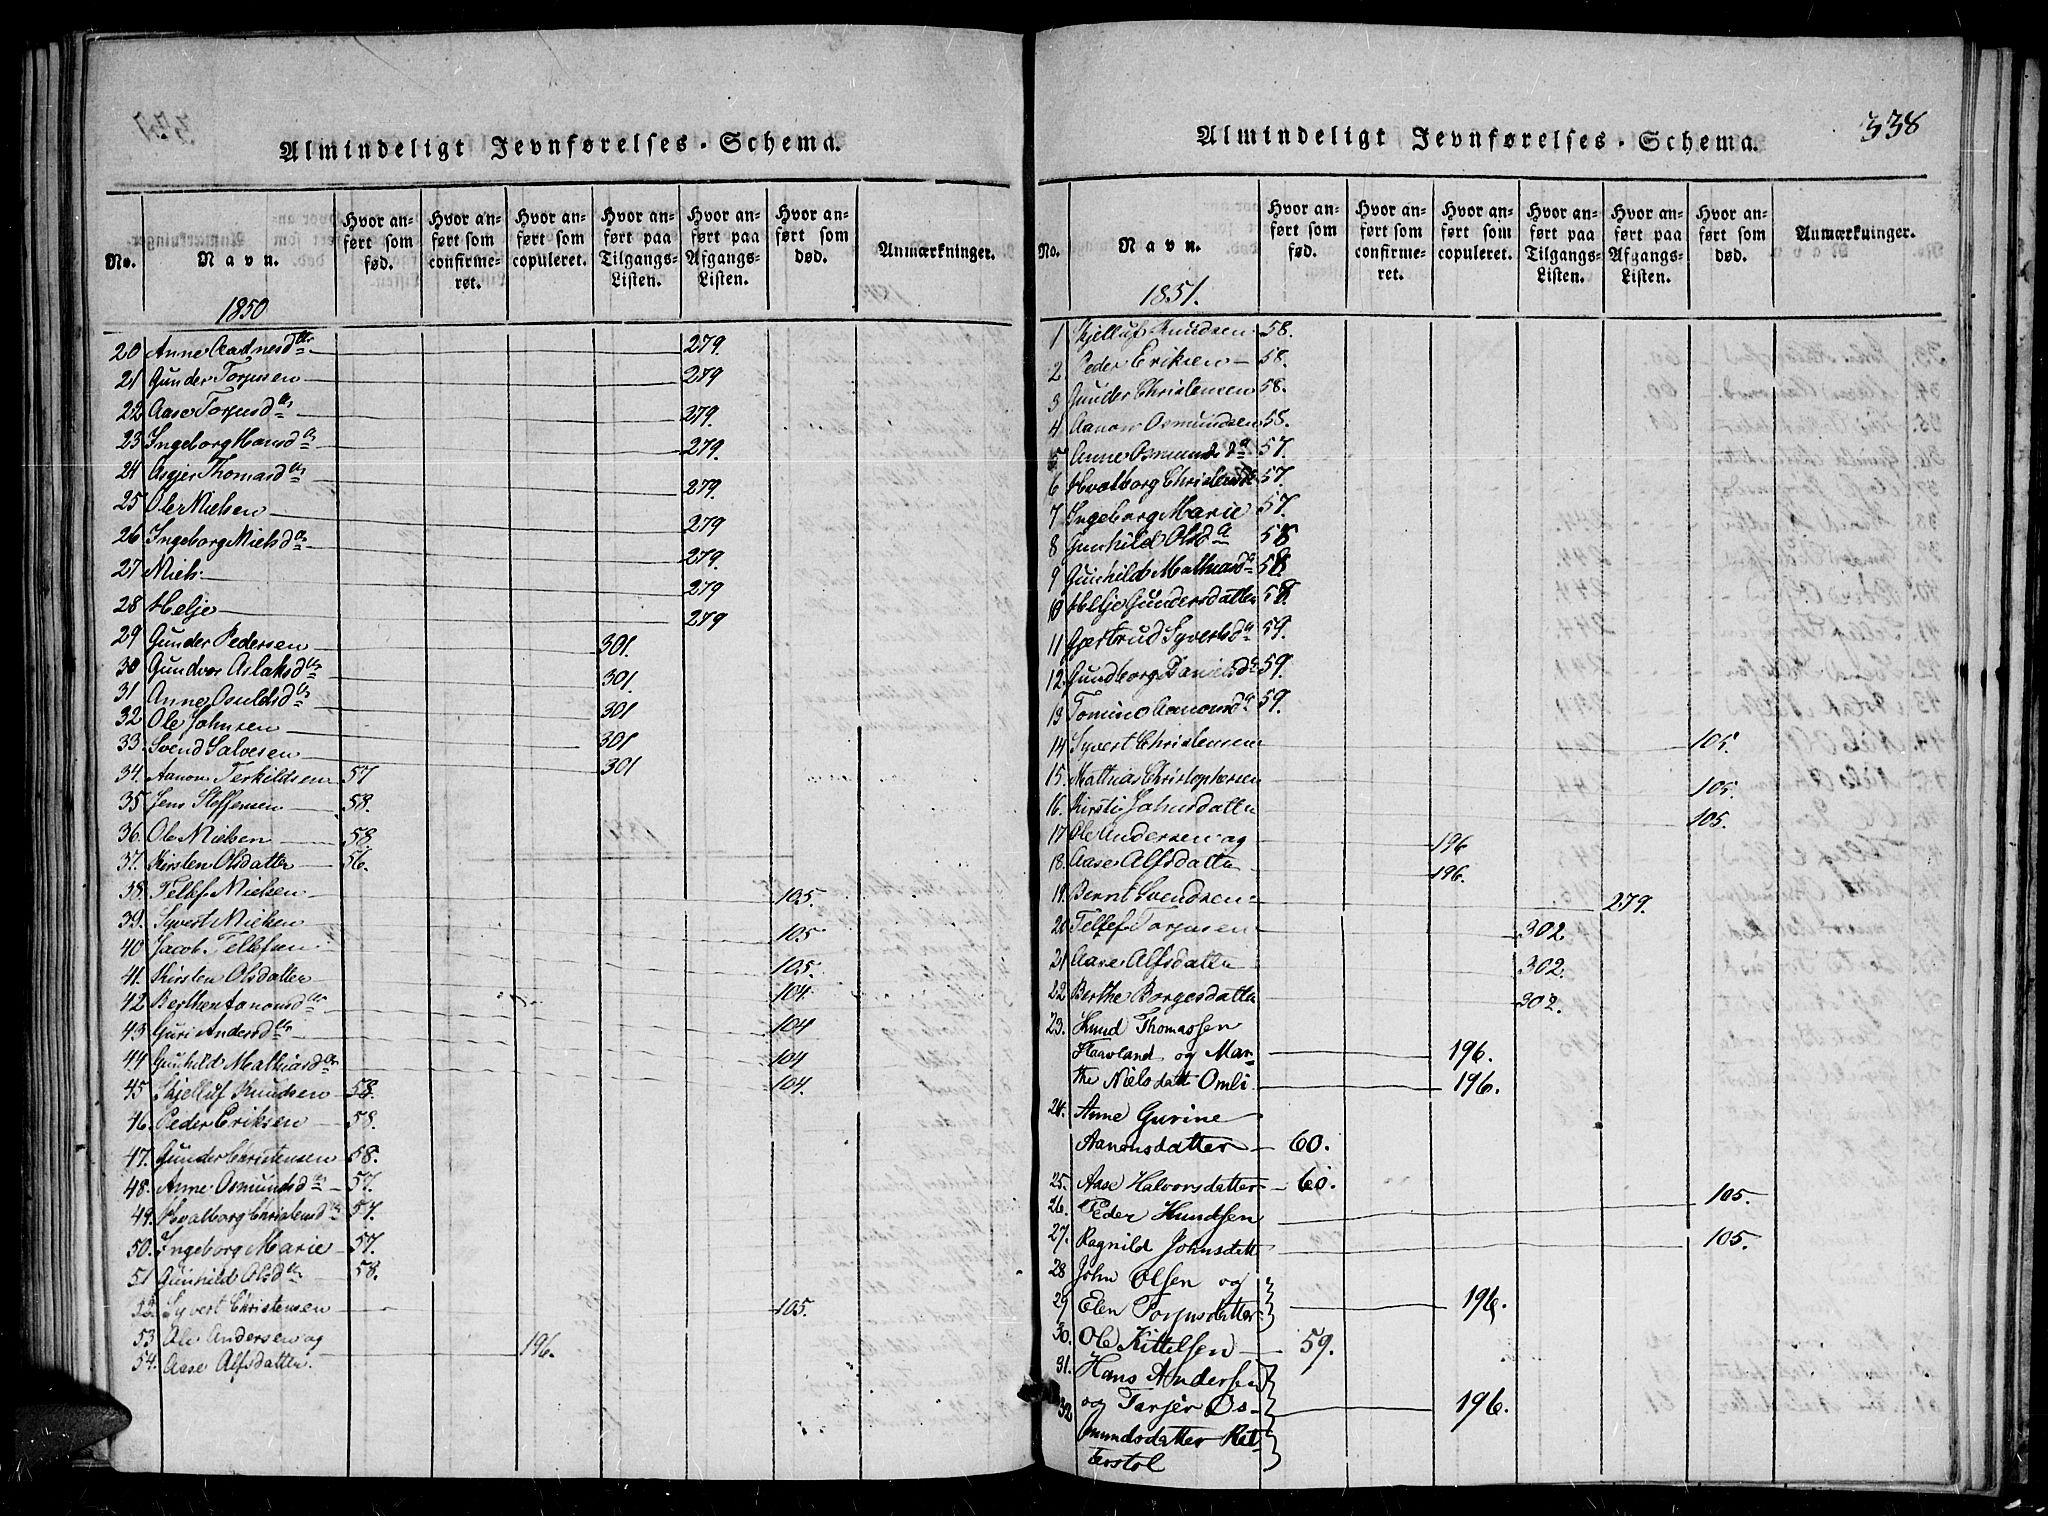 Almindeligt Jevnførelses-Schema.
No.
Navn.
Hvor anført som fød.
Hvor anført som confirmeret.
Hvor anført som copuleret.
Hvor anført paa Tilgangs-Listen.
Hvor anført paa Afgangs-Listen.
Hvor anført som død.
Anmærkninger.
1850
20 Anne Aadnesdtr 279.
21 Gunder Torjusen 279
22 Aase Torjusdtr 279.
23 Ingeborg Hansdtr 279.
24 Asgjer Thomasdtr 279.
25 Ole Nielsen 279
26 Ingeborg Nielsdtr 279.
27 Niels 279
28 Helje 279
29 Gunder Pedersen 301.
30 Gundvor Aslaksdtr 301.
31 Anne Osuldsdtr 301
32 Ole Johnsen 301
33 Svend Salvesen 301
34. Aanon Terkildsen 57
35 Jens Steffensen 58.
36. Ole Nielsen 58.
37. Kirsten Olsdatter 56.
38. Tellef Nielsen 105.
39. Syvert Nielsen 105.
40 Jacob Tellefsen 105.
41. Kirsten Olsdatter 104.
42 Berthe Aanonsdtr 104
43. Guri Andersdtr 104
44 Gunhild Mathiasdtr 104.
45 Kjelluf Knudsen 58.
46. Peder Eriksen 58.
47. Gunder Christensen 58.
48. Anne Osmundsdtr 57.
49. Hvalborg Christensdtr 57.
50. Ingeborg Marie 57.
51 Gunhild Olsdtr 58.
52. Syvert Christensen 105.
53 Ole Andersen og
54. Aase Alfsdatter. 196.
338
Almindeligt Jevnførelses-Schema.
No.
Navn.
Hvor anført som fød.
Hvor anført som confirmeret.
Hvor anført som copuleret.
Hvor anført paa Tilgangs-Listen.
Hvor anført paa Afgangs-Listen.
Hvor anført som død.
Anmærkninger.
1851.
1 Kjelluf Knudsen 58.
2 Peder Eriksen 58.
3 Gunder Christensen 58.
4 Aanon Osmundsen 58.
5 Anne Osmundsda 57.
6 Hvalborg Christensd 57.
7 Ingeborg Marie 57.
8 Gunhild Olsda 58
9 Gunhild Mathiasd 58.
10 Helje Gundersdatter 58.
11 Gjertrud Syvertsda 59.
12. Gundborg Danielsd 59.
13 Tomine Aanonsda 59.
14 Syvert Christensen 105.
15. Mathias Christophersen 105.
16. Kirsti Johnsdatter 105.
17 Ole Andersen og 196
18. Aase Alfsdatter 196.
19. Bernt Svendsen 279.
20 Tellef Torjusen 302
21 Aase Alfsdatter 302.
22 Berthe Borgesdatter 302.
23. Knud Thomassen
Flaavland og Mar- 196.
the Nielsdatt Omli 196.
24. Anne Gurine
Aanonsdatter 60.
25. Aase Halvorsdatter 60.
26. Peder Knudsen 105.
27. Ragnild Johnsdatt 105.
28 John Olsen og
29 Elen Torjusdatter 196.
30. Ole Kittelsen 59.
31. Hans Andersen
32 og Tarjer Os- 196.
mundsdatter Ret-
terstøl